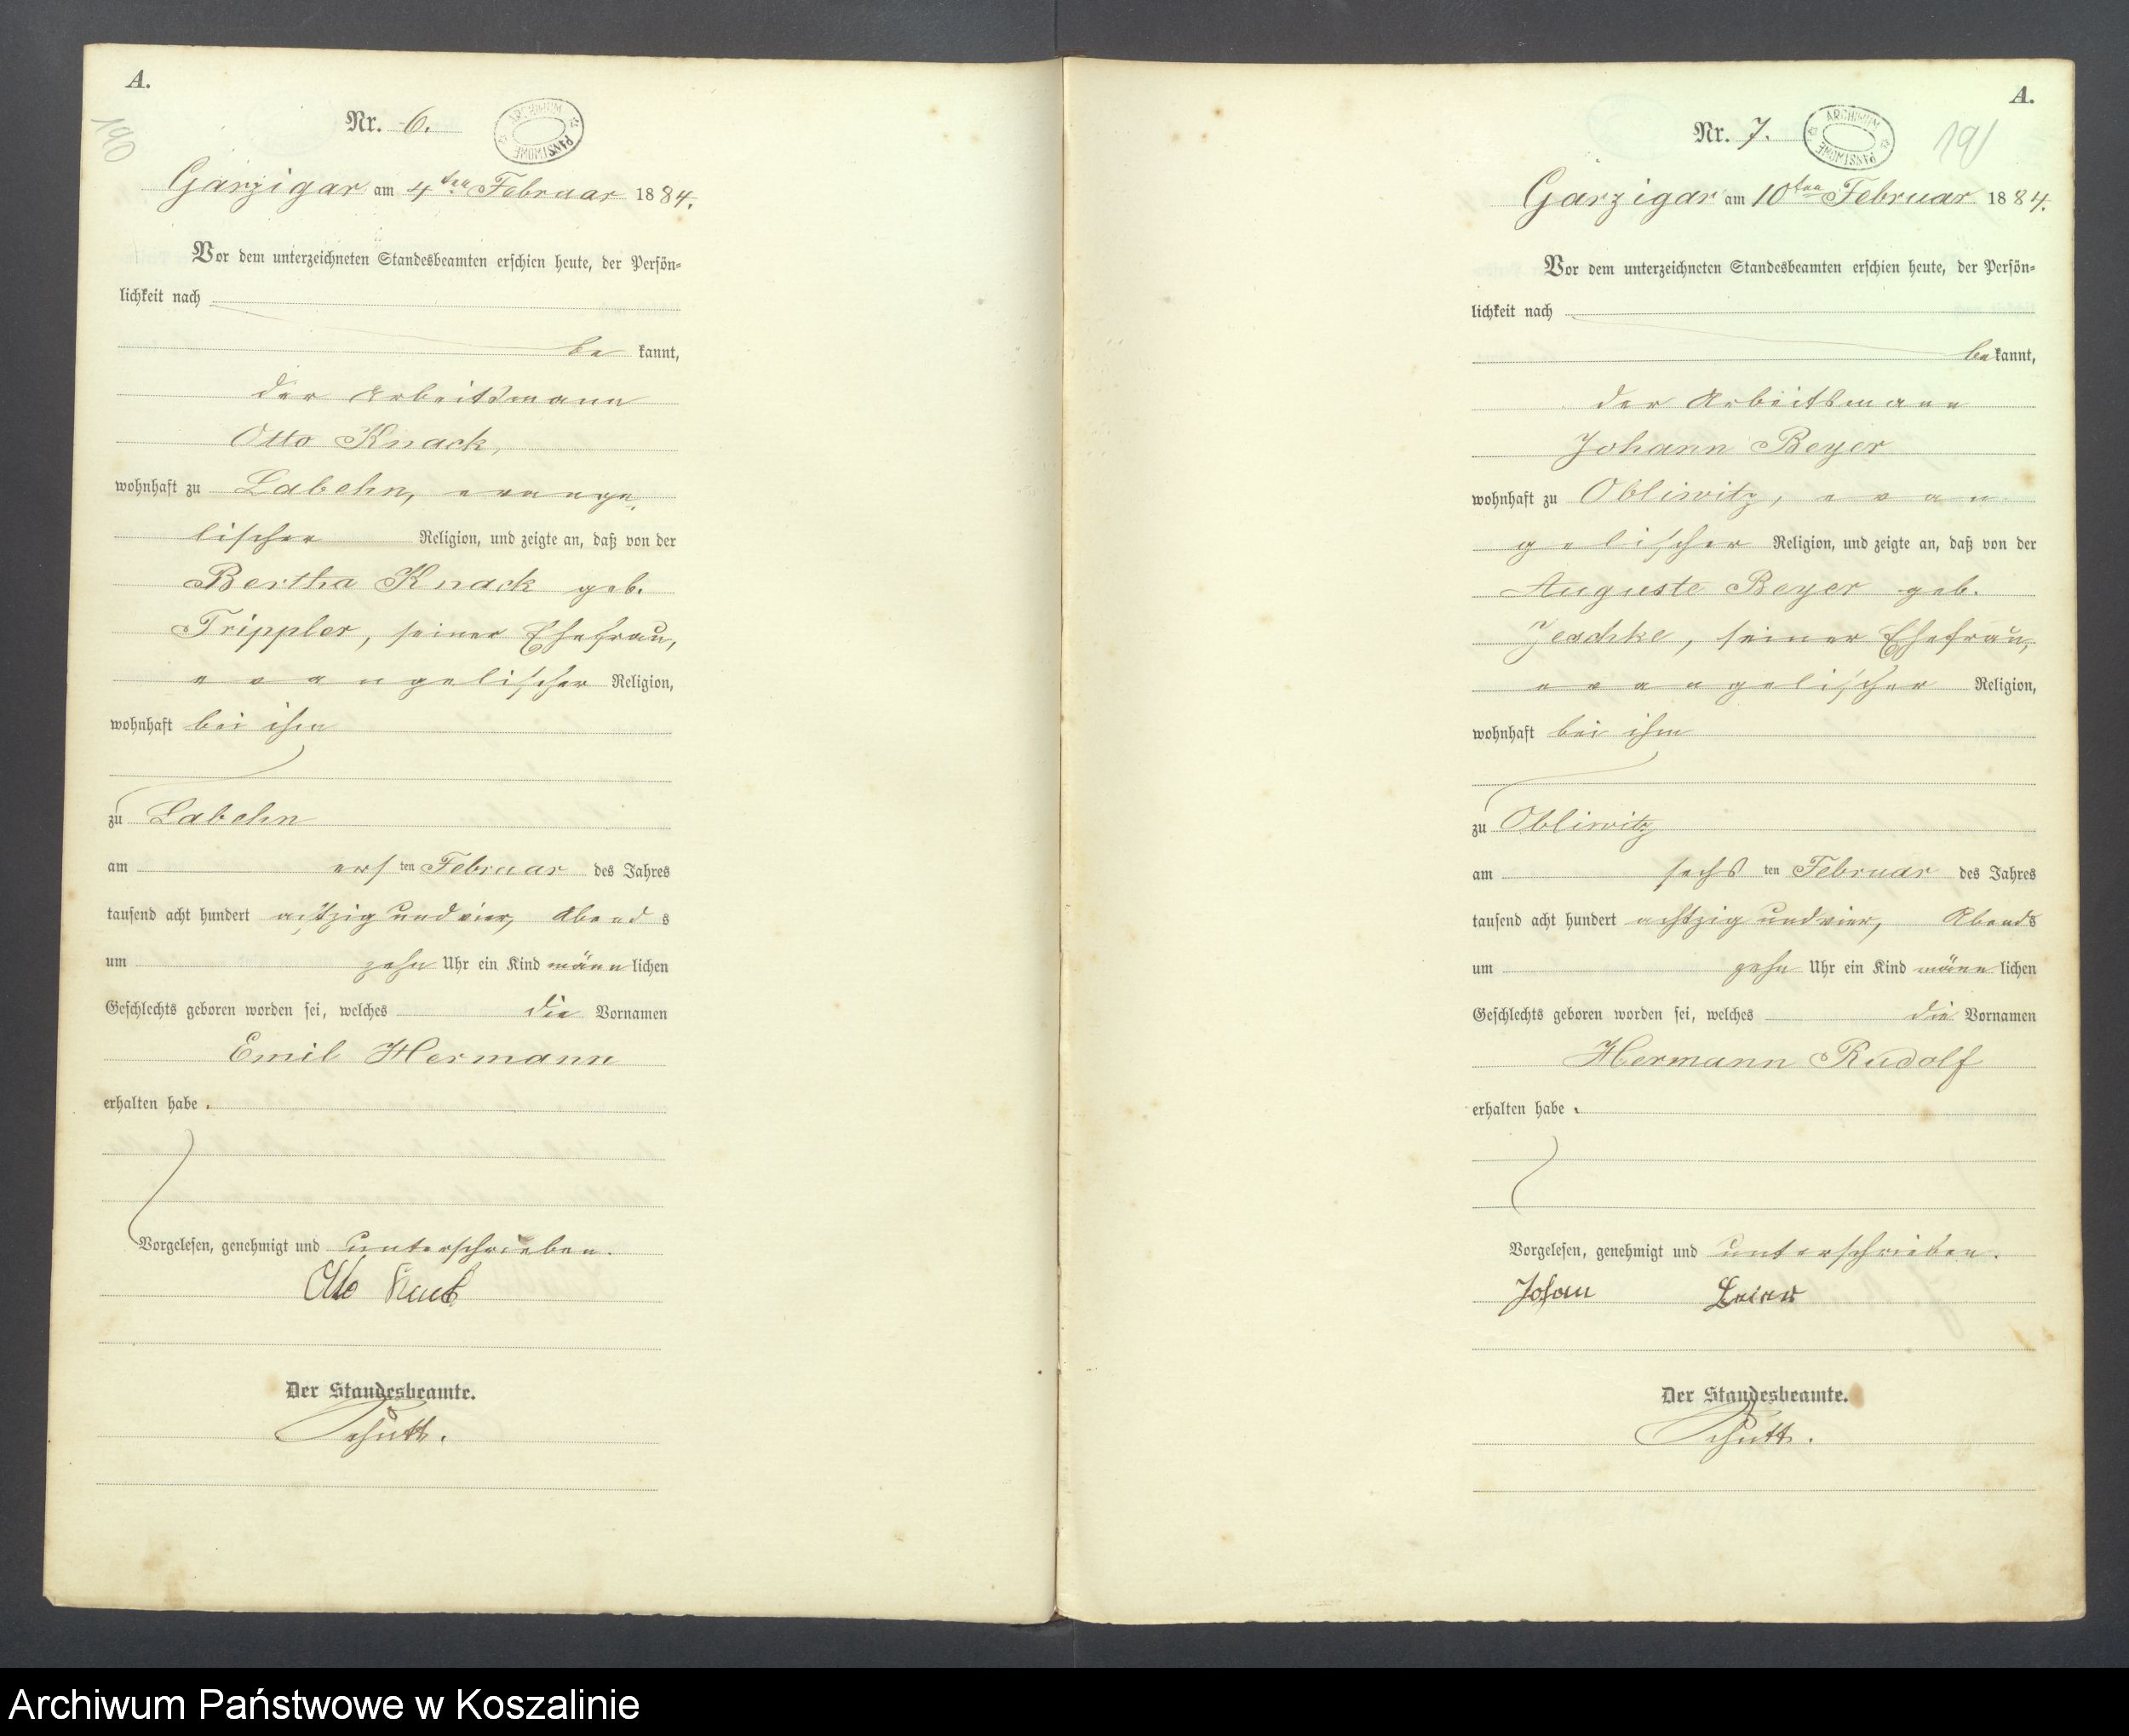 A.
190
Nr. 6.
ARCHIWUM PAŃSTWOWE
Garzigar am 4ten Februar 1884.
Vor dem unterzeichneten Standesbeamten erschien heute, der Persön-
lichkeit nach
be kannt,
der Arbeitsmann
Otto Knack,
wohnhaft zu Labehn, evange-
lischer Religion, und zeigte an, daß von der
Bertha Knack geb.
Trippler, seiner Ehefrau,
evangelischer Religion,
wohnhaft bei ihm
zu Labehn
am ers ten Februar des Jahres
tausend acht hundert achtzig und vier, Abend s
um zehn Uhr ein Kind männ lichen
Geschlechts geboren worden sei, welches die Vornamen
Emil Hermann
erhalten habe.
Vorgelesen, genehmigt und unterschrieben.
Otto Knack
Der Standesbeamte.
Schütt.
A.
191
Nr. 7.
ARCHIWUM PAŃSTWOWE
Garzigar am 10ten Februar 1884.
Vor dem unterzeichneten Standesbeamten erschien heute, der Persön-
lichkeit nach
be kannt,
der Arbeitsmann
Johann Beyer
wohnhaft zu Obliwitz, evan
gelischer Religion, und zeigte an, daß von der
Auguste Beyer geb.
Jeschke, seiner Ehefrau,
evangelischer Religion,
wohnhaft bei ihm
zu Obliwitz
am sechs ten Februar des Jahres
tausend acht hundert achtzig und vier, Abends
um zehn Uhr ein Kind männ lichen
Geschlechts geboren worden sei, welches die Vornamen
Hermann Rudolf
erhalten habe.
Vorgelesen, genehmigt und unterschrieben.
Johan Beier
Der Standesbeamte.
Schütt.
Archiwum Państwowe w Koszalinie